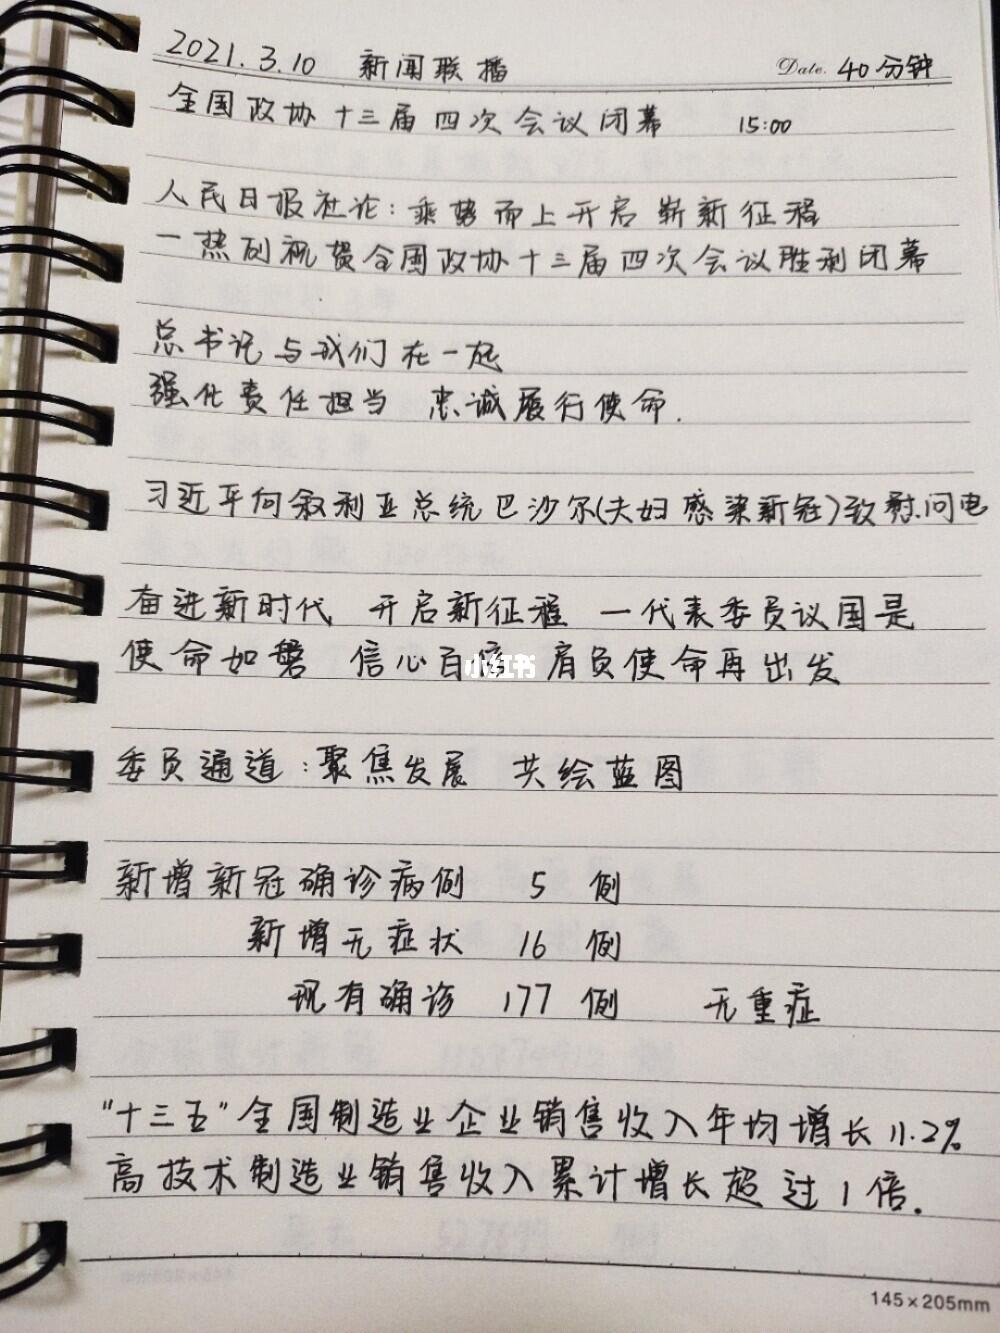 2021.3.10 新闻联播 Date. 40分钟
全国政协十三届四次会议闭幕 15:00
人民日报社论:乘势而上开启崭新征程
一热烈祝贺全国政协十三届四次会议胜利闭幕
总书记与我们在一起
强化责任担当 忠诚履行使命.
习近平向叙利亚总统巴沙尔(夫妇感染新冠)致慰问电
奋进新时代 开启新征程 一代表委员议国是
使命如磐 信心百倍 肩负使命再出发
小红书
委员通道:聚焦发展 共绘蓝图
新增新冠确诊病例 5 例
新增无症状 16 例
现有确诊 177 例 无重症
"十三五"全国制造业企业销售收入年均增长11.2%
高技术制造业销售收入累计增长超过1倍.
145×205mm